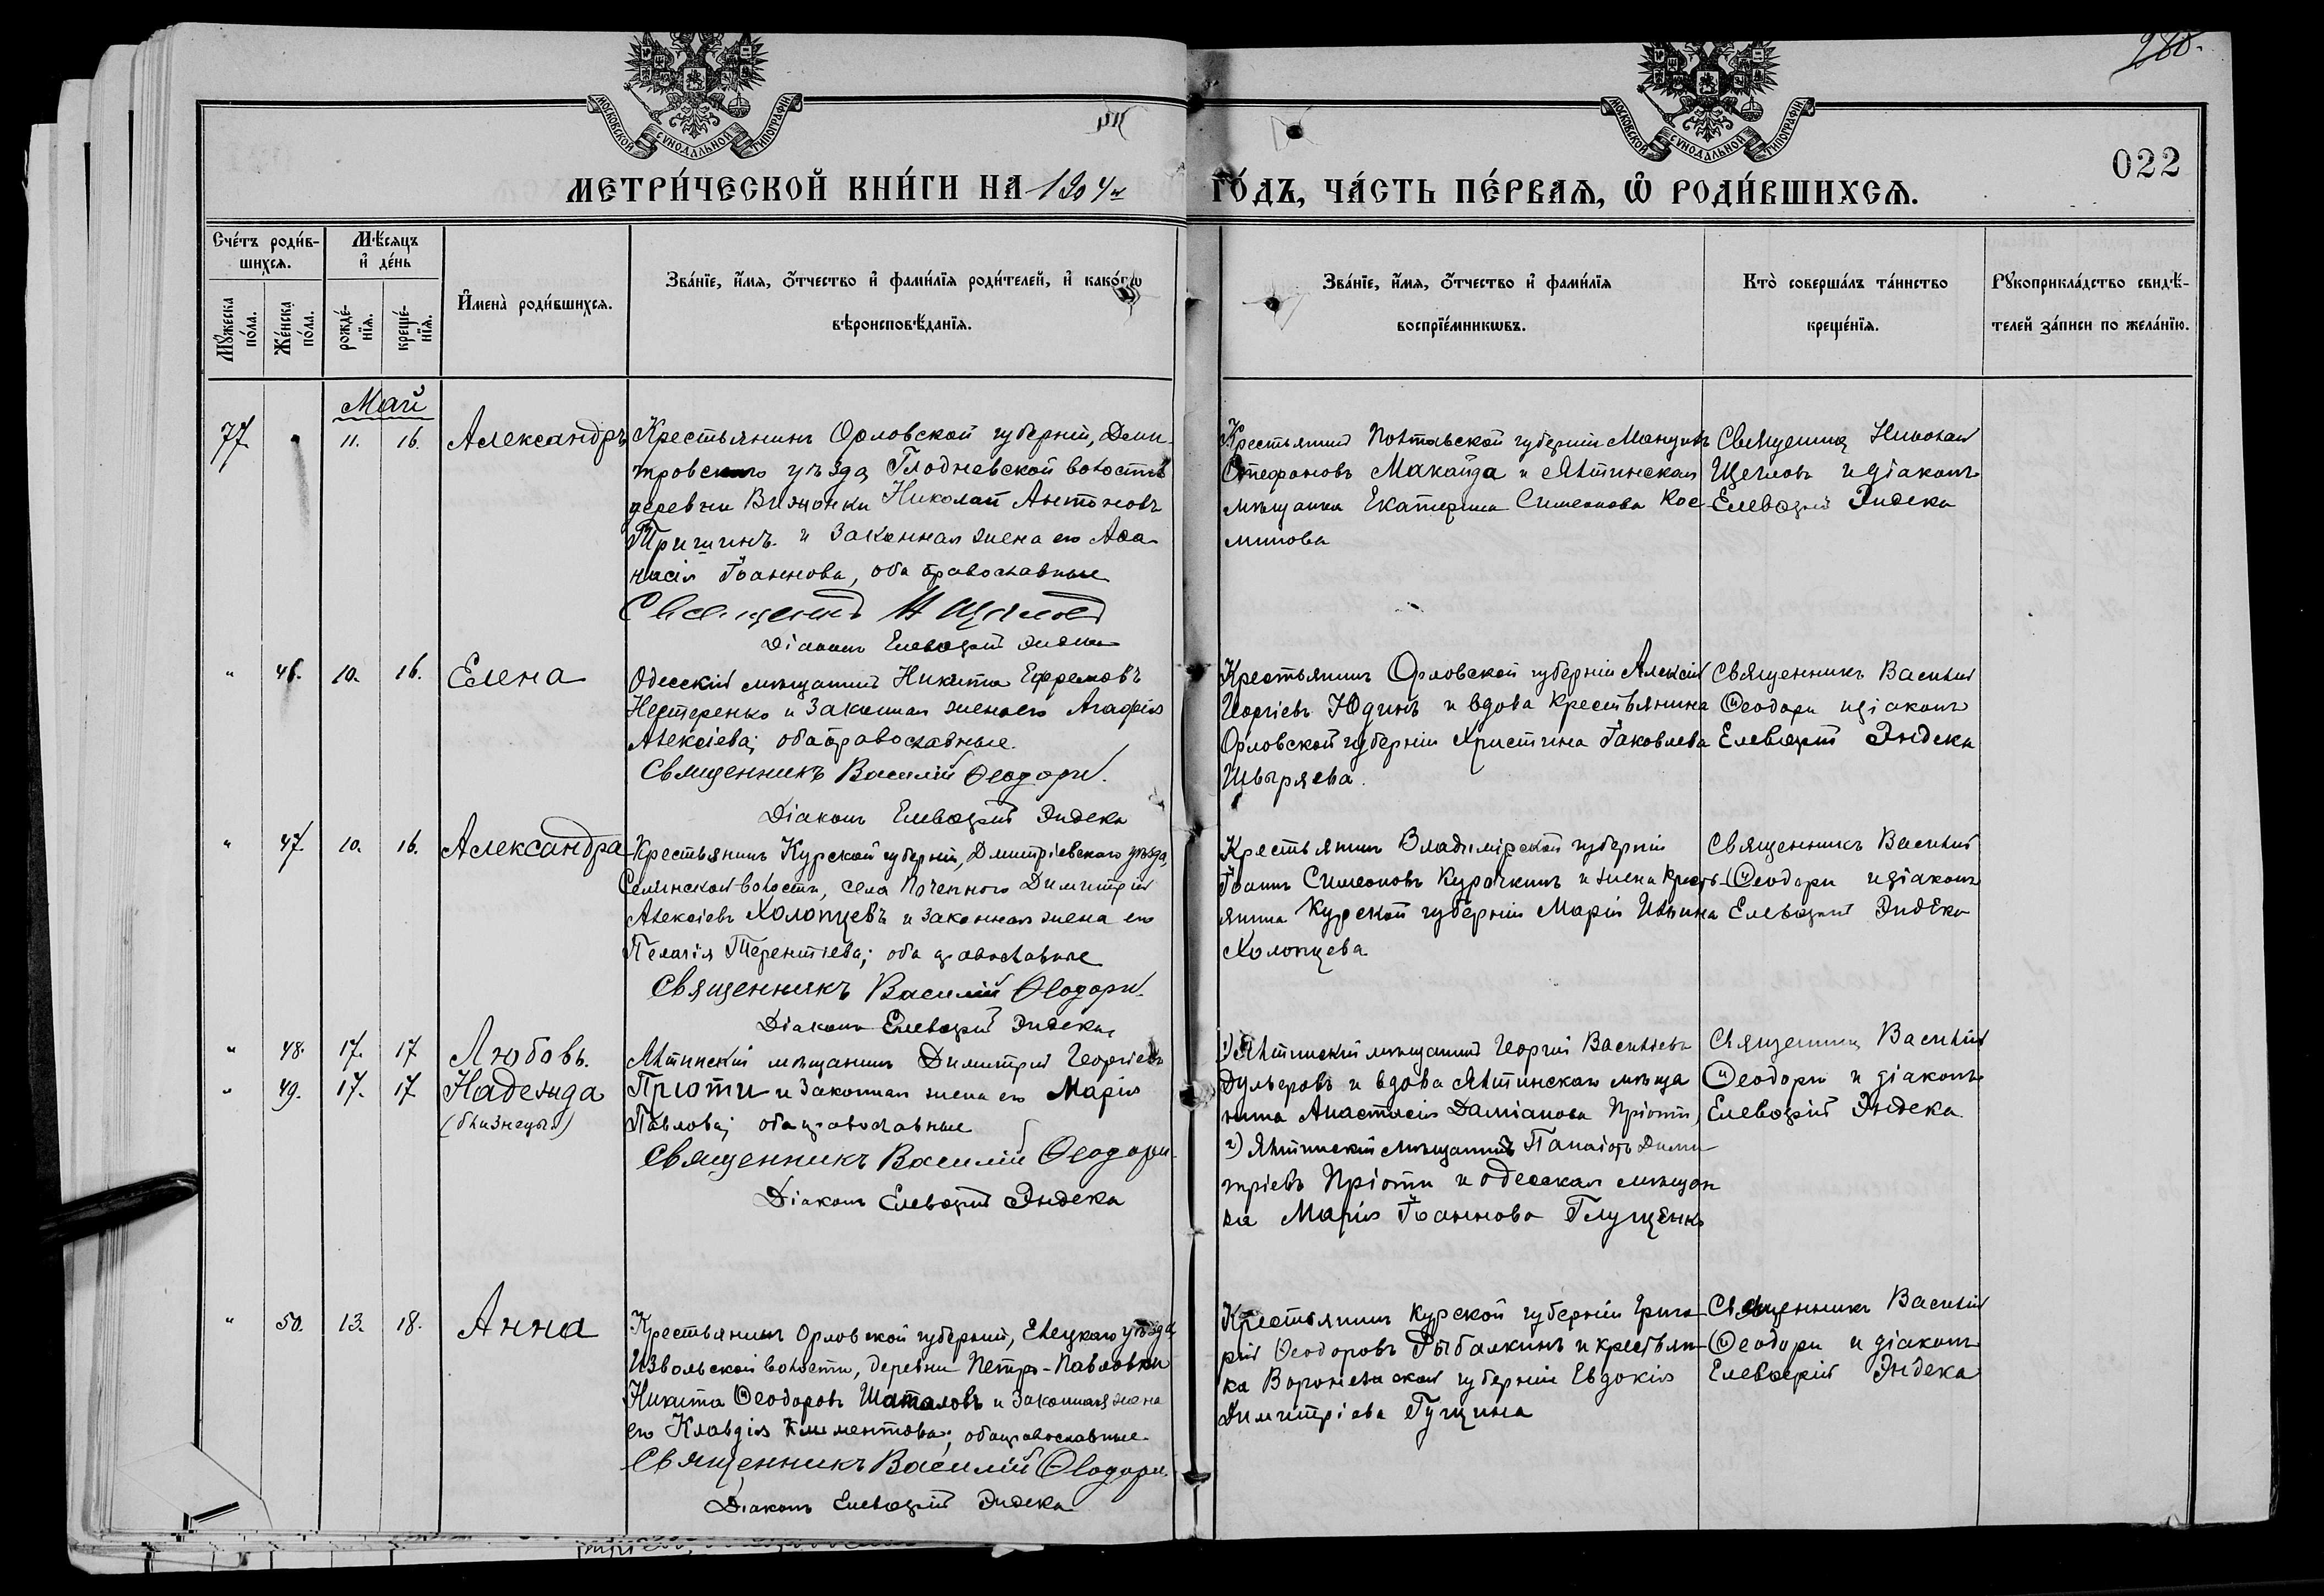 288.
022
МОСКОВСКОЙ СУНОДАЛЬНОЙ ТИПОГРАФІИ
МОСКОВСКОЙ СУНОДАЛЬНОЙ ТИПОГРАФІИ
МЕТРИ́ЧЕСКОЙ КНИ́ГИ НА 1904й ГО́ДЪ, ЧА́СТЬ ПЕ́РВАѦ, Ѡ РОДИ́ВШИХСѦ.
Сче́тъ роди́в-
шихсѧ.
Мꙋжеска по́ла.
Же́нска по́ла.
Мѣ́сѧцъ
и҆ де́нь
рожде́-
нїѧ.
креще́-
нїѧ.
И҆мена̀ роди́вшихсѧ.
Зва́нїе, и҆́мѧ, ѻ҆́тчество и҆ фами́лїѧ роди́телей, и҆ како́гѡ
вѣроисповѣ́данїѧ.
Зва́нїе, и҆́мѧ, ѻ҆́тчество и҆ фами́лїѧ
воспрїе́мникѡвъ.
Кто̀ соверша́лъ та́инство
креще́нїѧ.
Рꙋкоприкла́дство свидѣ́-
телей за́писи по жела́нїю.
Май
77. 11. 16. Александръ
Крестьянинъ Орловской губерніи, Дми-
тровскаго уѣзда, Глодневской волости
деревни Николай Антоновъ
Тришинъ и законная жена его Аѳа-
насія Іоаннова, оба православные
Священникъ Н Щегловъ
Діаконъ Елевѳерій Эндека
Крестьянинъ Полтавской губерніи
Стефановъ Макайда и Ялтинская
мѣщанка Екатерина Симеонова Кос-
минова
Священникъ Николай
Щегловъ и діаконъ
Елевѳерій Эндека
" 46. 10. 16. Елена
Одесскій мѣщанинъ Никита Ефремовъ
Нестеренко и законная жена его Агафія
Алексіева; оба православные.
Священникъ Василій Ѳеодори.
Діаконъ Елевѳерій Эндека
Крестьянинъ Орловской губерніи Алексій
Георгіевъ Юдинъ и вдова крестьянина
Орловской губерніи Христина Іаковлева
Швыряева.
Священникъ Василій
Ѳеодори и діаконъ
Елевѳерій Эндека
" 47. 10. 16. Александра
Крестьянинъ Курской губерніи, Дмитріевскаго уѣзда,
Селинской волости, села Поченного Димитрій
Алексіевъ Холопцевъ и законная жена его
Пелагія Терентіева; оба православные
Священникъ Василій Ѳеодори.
Діаконъ Елевѳерій Эндека
Крестьянинъ Владимірской губерніи
Іоаннъ Симеоновъ Курочкинъ и жена кресть-
янина Курской губерніи Марія Ильина
Холопцева
Священникъ Василій
Ѳеодори и діаконъ
Елевѳерій Эндека
" 48. 17. 17 Любовь.
" 49. 17. 17 Надежда
(близнецы)
Ялтинскій мѣщанинъ Димитрій Георгіевъ
Пріоти и законная жена его Марія
Павлова; оба православные
Священникъ Василій Ѳеодори.
Діаконъ Елевѳерій Эндека
1) Ялтинскій мѣщанинъ Георгій Василіевъ
Дульеровъ и вдова Ялтинскаго мѣща
нина Анастасія Даміанова Пріоти,
2) Ялтинскій мѣщанинъ Панаіотъ Дими
тріевъ Пріоти и одесская мѣщан
ка Марія Іоаннова Глущенко
Священникъ Василій
Ѳеодори и діаконъ
Елевѳерій Эндека
" 50. 13. 18. Анна
Крестьянинъ Орловской губерніи, Елецкаго уѣзда,
Извольской волости, деревни Петро-Павловки
Никита Ѳеодоровъ Шаталовъ и законная жена
его Клавдія Климентова; оба православные
Священникъ Василій Ѳеодори.
Діаконъ Елевѳерій Эндека
Крестьянинъ Курской губерніи Григо
рій Ѳеодоровъ Рыбалкинъ и крестьян
ка Воронежской губерніи Евдокія
Димитріева Гущина
Священникъ Василій
Ѳеодори и діаконъ
Елевѳерій Эндека